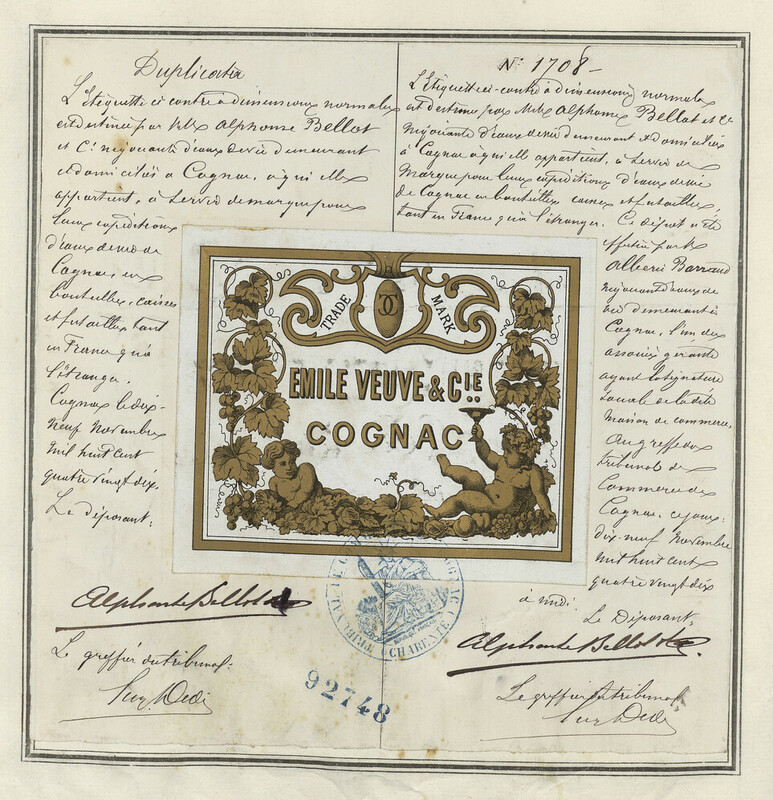 Duplicata
L'Etiquette ci contre à dimensions normales
est destinée par MMrs Alphonse Bellot
et Cie négociants d'eaux de vie demeurant
et domiciliés à Cognac, à qui elle
appartient, à servir de marque pour
leurs expéditions
d'eaux de vie de
Cognac, en
bouteilles, caisses
et futailles tant
en France qu'à
l'étranger.
Cognac le dix-
neuf Novembre
mil huit cent
quatre vingt dix.
Le déposant:
Alphonse Bellot
Le greffier du tribunal:
No 1708-
L'Etiquette ci-contre à dimensions normales
est destinée par MMrs Alphonse Bellot et Cie
négociants d'eaux de vie demeurant & domiciliés
à Cognac à qui elle appartient, à servir de
Marque pour leurs expéditions d'eaux de vie
de Cognac en bouteilles caisses et futailles,
tant en France qu'à l'étranger. Ce dépôt a été
effectué par Mr
Alberic Barraud
négociant d'eaux de
vie demeurant à
Cognac, l'un des
associés gérants
ayant la signature
sociale de la dite
maison de commerce,
au greffe du
tribunal de
Commerce de
Cognac, ce jour
dix-neuf Novembre
mil huit cent
quatre vingt dix
à midi
Le Déposant:
Alphonse Bellot
Le greffier du tribunal
TRADE MARK
EMILE VEUVE & CIE
COGNAC
CHARENTE
92748